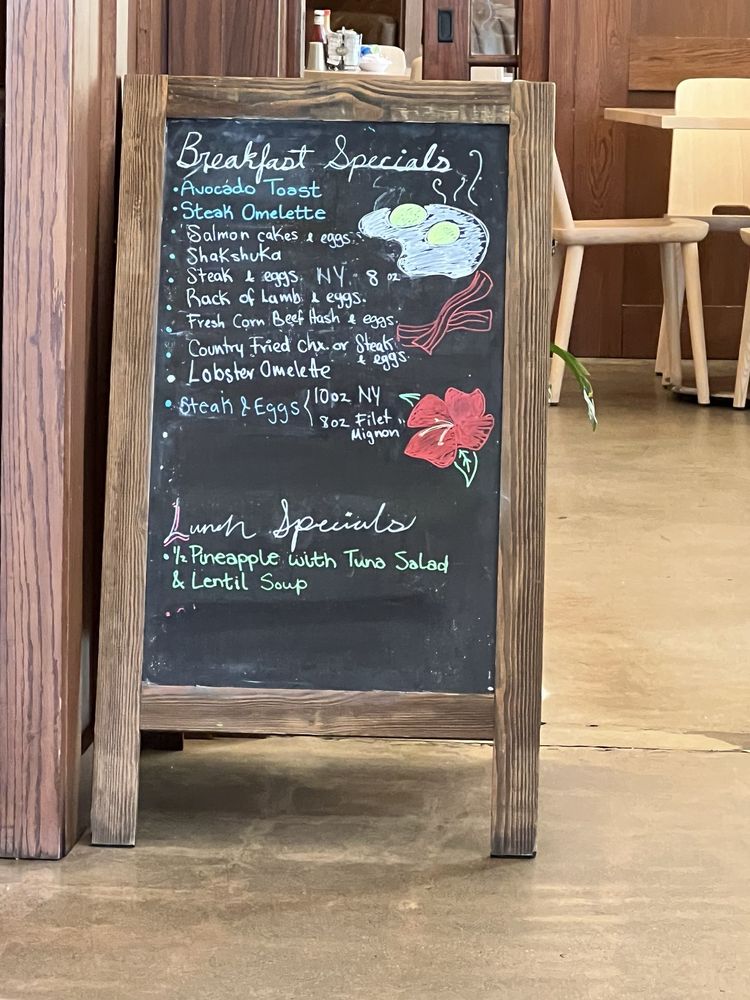 Breakfast Specials
• Avocado Toast
• Steak Omelette
• Salmon cakes & eggs.
• Shakshuka
• Steak & eggs. NY - 8 oz
Rack of Lamb & eggs.
• Fresh Corn Beef Hash & eggs.
• Country Fried Chx. or Steak
& eggs.
• Lobster Omelette
• Steak & Eggs 10oz NY
8oz Filet
Mignon
•
Lunch Specials
• 1/2 Pineapple with Tuna Salad
& Lentil Soup
•